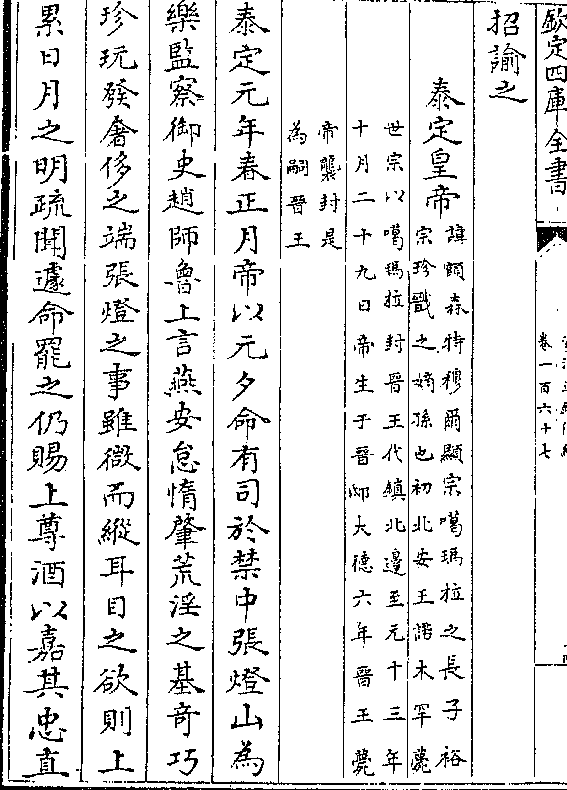 欽定四庫全書
卷一百六十七
招諭之
泰定皇帝
諱額森特穆爾顯宗噶瑪拉之長子裕
宗珍戩之嫡孫也初北安王諾木罕薨
世宗以噶瑪拉封晉王代鎮北邊至元十三年
十月二十九日帝生于晉邸大德六年晉王薨
帝襲封是
為嗣晉王
泰定元年春正月帝以元夕命有司於禁中張燈山為
樂監察御史趙師魯上言燕安怠惰肇荒淫之基奇巧
珍玩發奢侈之端張燈之事雖微而縱耳目之欲則上
累日月之明疏聞遽命罷之仍賜上尊酒以嘉其忠直